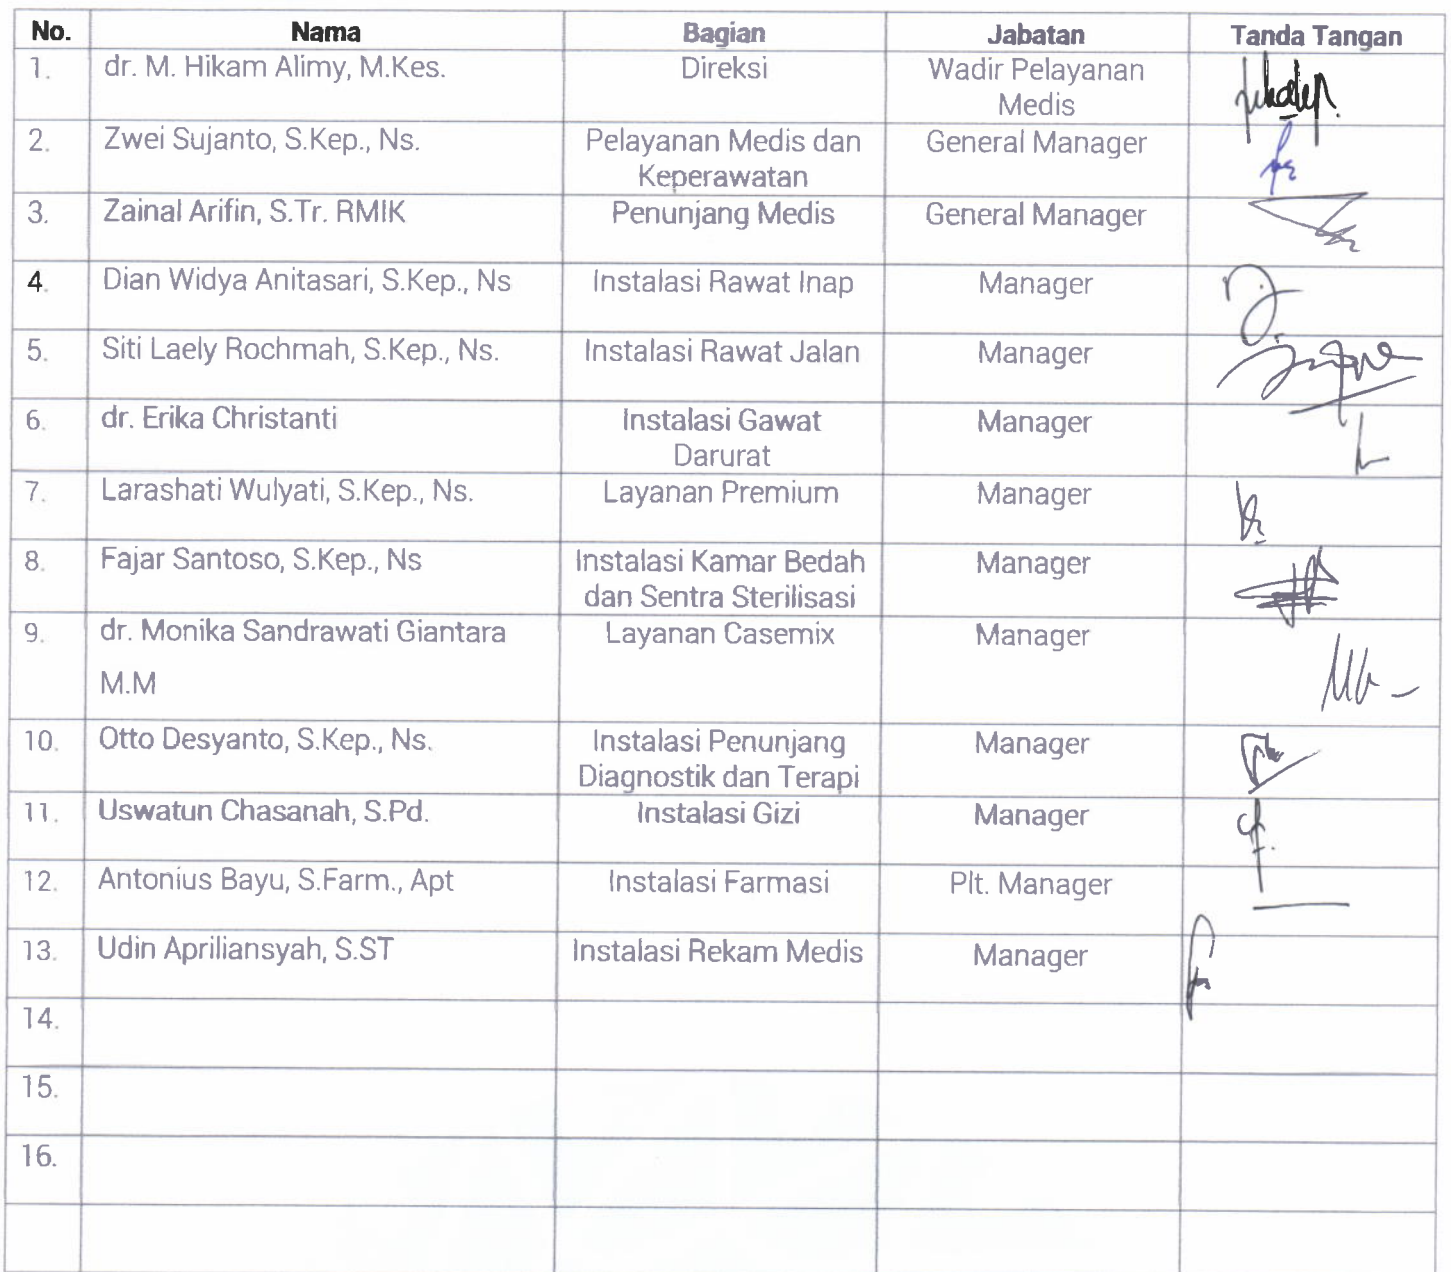 No. Nama Bagian Jabatan Tanda Tangan
1. dr. M. Hikam Alimy, M.Kes. Direksi Wadir Pelayanan
Medis
2. Zwei Sujanto, S.Kep., Ns. Pelayanan Medis dan General Manager
Keperawatan
3. Zainal Arifin, S.Tr. RMIK Penunjang Medis General Manager
4. Dian Widya Anitasari, S.Kep., Ns Instalasi Rawat Inap Manager
5. Siti Laely Rochmah, S.Kep., Ns. Instalasi Rawat Jalan Manager
6. dr. Erika Christanti Instalasi Gawat Manager
Darurat
7. Larashati Wulyati, S.Kep., Ns. Layanan Premium Manager
8. Fajar Santoso, S.Kep., Ns Instalasi Kamar Bedah Manager
dan Sentra Sterilisasi
9. dr. Monika Sandrawati Giantara Layanan Casemix Manager
M.M
10. Otto Desyanto, S.Kep., Ns. Instalasi Penunjang Manager
Diagnostik dan Terapi
11. Uswatun Chasanah, S.Pd. Instalasi Gizi Manager
12. Antonius Bayu, S.Farm., Apt Instalasi Farmasi Plt. Manager
13. Udin Apriliansyah, S.ST Instalasi Rekam Medis Manager
14.
15.
16.